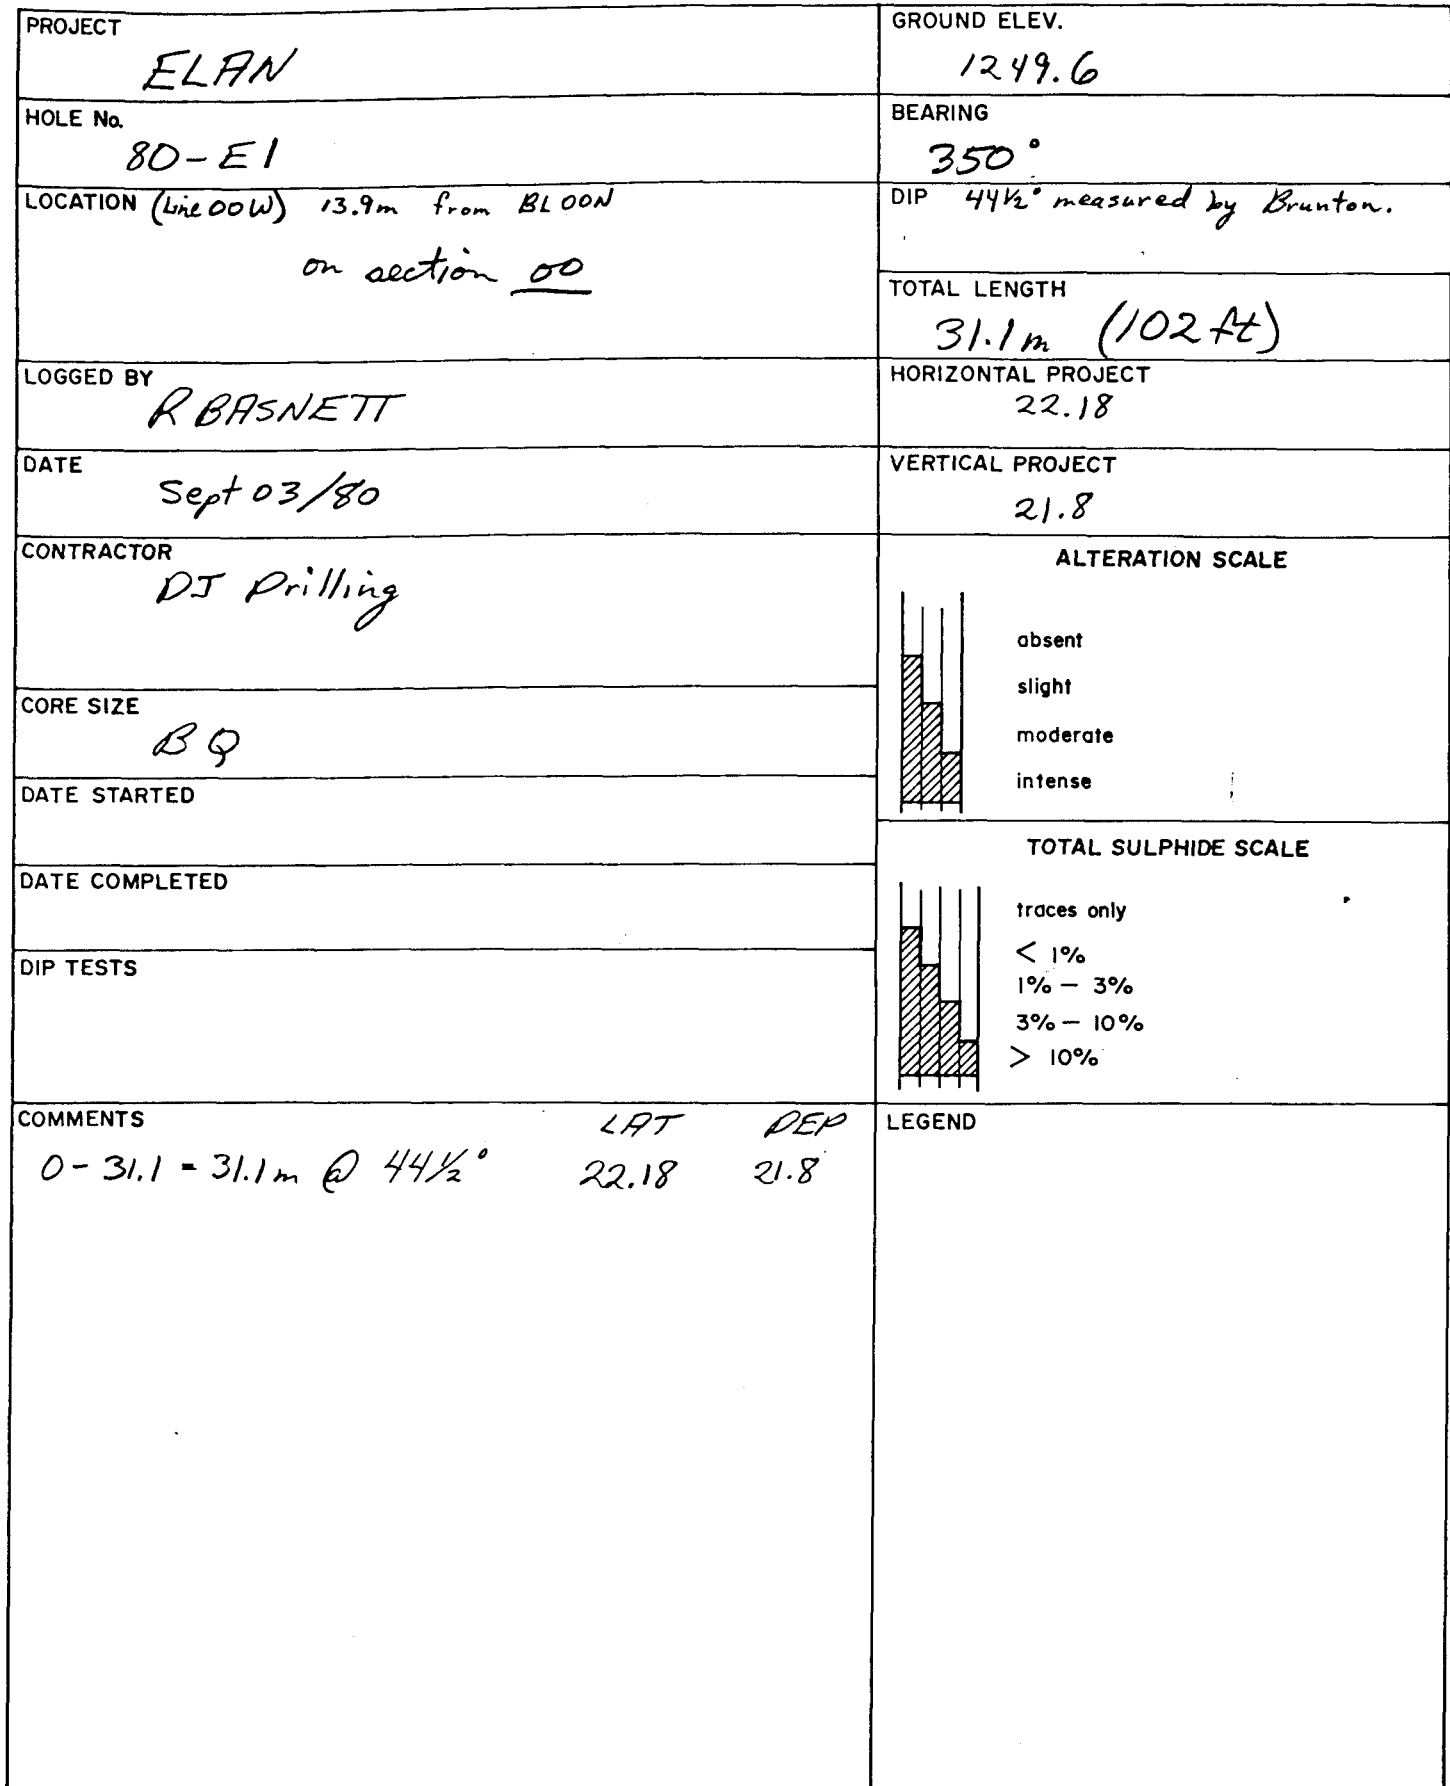 PROJECT
ELAN
HOLE No.
80-E1
LOCATION (Line 00W) 13.9m from BL 00N
on section 00
LOGGED BY
R BASNETT
DATE
Sept 03/80
CONTRACTOR
DJ Drilling
CORE SIZE
BQ
DATE STARTED
DATE COMPLETED
DIP TESTS
COMMENTS LAT DEP
0-31.1 = 31.1m @ 44½° 22.18 21.8
GROUND ELEV.
1249.6
BEARING
350°
DIP 44½° measured by Brunton.
TOTAL LENGTH
31.1m (102 ft)
HORIZONTAL PROJECT
22.18
VERTICAL PROJECT
21.8
ALTERATION SCALE
absent
slight
moderate
intense
TOTAL SULPHIDE SCALE
traces only
< 1%
1% – 3%
3% – 10%
> 10%
LEGEND